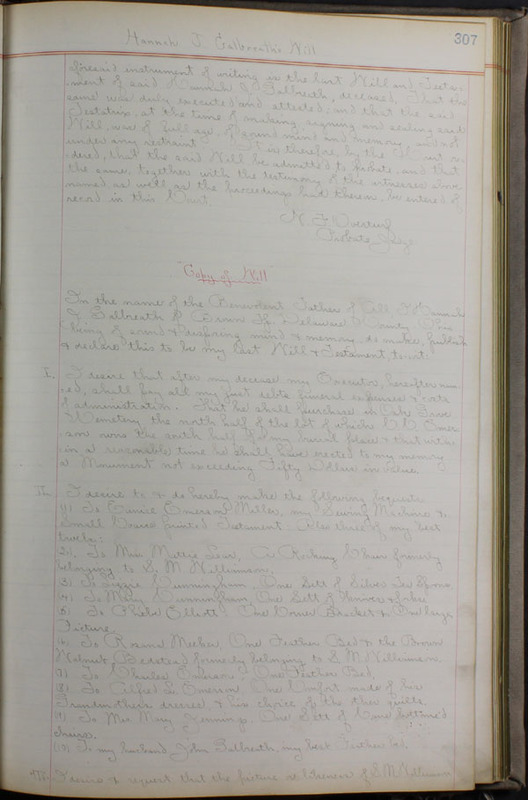 307
Hannah J. Galbreath's Will
aforesaid instrument of writing is the last Will and Testa-
ment of said Hannah J. Galbreath, deceased, That the
same was duly executed and attested, and that the said
Testatrix, at the time of making, signing and sealing said
Will, was of full age, of sound mind and memory, and not
under any restraint. It is therefore, by the Court or-
dered, that the said Will be admitted to probate, and that
the same, together with the testimony of the witnesses above
named as well as the proceedings had therein, be entered of
record in this Court.
Probate Judge
Copy of Will
In the name of the Benevolent Father of All, I Hannah
J Galbreath of Delaware County Ohio
being of sound & disposing mind & memory do make, publish
& declare this to be my last Will & Testament, to wit:
I. I desire that after my decease my Executor, hereafter nam-
ed, shall pay all my just debts funeral expenses & costs
of administration. That he shall purchase in Oak Grove
Cemetery the north half of the lot of which Emer-
son owns the south half for my burial place & that with-
in a reasonable time he shall have erected to my memory
a Monument not exceeding Fifty Dollars in value.
II. I desire to & do hereby make the following bequests
1) To Eunice Emerson Miller, my Sewing Machine &
Small Coarse printed Testament. Also three of my best
2). To Mrs Mattie Lear, A Rocking Chair formerly
belonging to S. M. Williamson.
3) To Lizzie Cunningham, One Sett of Silver Tea Spoons
(4) To Mary Cunningham, One Sett of Knives & forks
(5) To Phebe Elliott One Corner Bracket & One large
Picture.
To Rosana Meeker One Feather Bed & the Brown
Walnut Bedstead formerly belonging to S. M. Williamson
(7) To Charles Emerson One Feather Bed,
(8) To Alfred L. Emerson, One Comfort made of his
Grandmother's dresses & his choice of the other quilts.
(9) To Mrs Mary Jennings, One Sett of Cane bottomed
Chairs.
(10) To my husband John Galbreath, my best Feather bed.
III I desire & request that the picture or likeness of S M Williamson